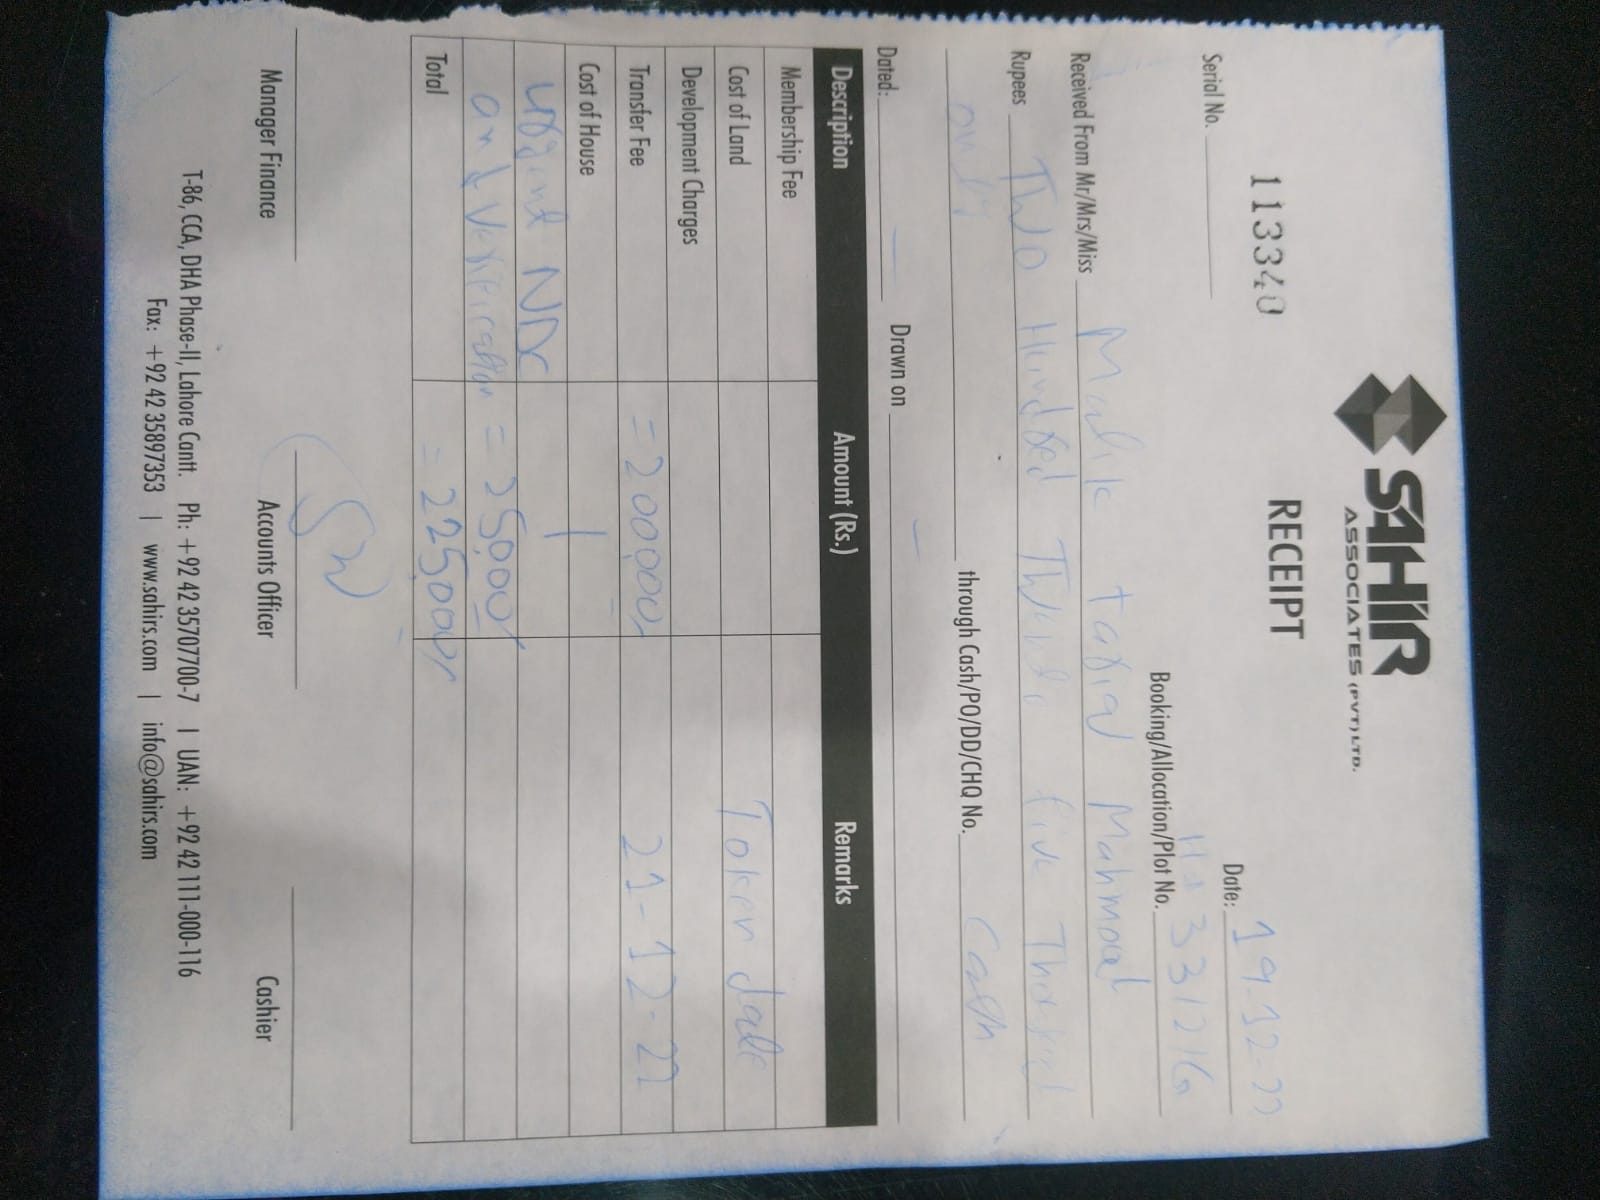 SAHIR
ASSOCIATES (PVT) LTD.
RECEIPT
113340
Serial No.
Date: 19-12-22
Booking/Allocation/Plot No. 331216
Received From Mr/Mrs/Miss Malik tariq Mahmood
Rupees Two Hundred Twenty five Thousand
only through Cash/PO/DD/CHQ No. Cash
Dated: — Drawn on —
Description Amount (Rs.) Remarks
Membership Fee
Cost of Land Token date
Development Charges
Transfer Fee =200,000/ 21-12-22
Cost of House
urgent NDC
and Verification =25,000/
Total =225,000/
Manager Finance Accounts Officer Cashier
T-86, CCA, DHA Phase-II, Lahore Cantt. Ph: +92 42 35707700-7 | UAN: +92 42 111-000-116
Fax: +92 42 35897353 | www.sahirs.com | info@sahirs.com